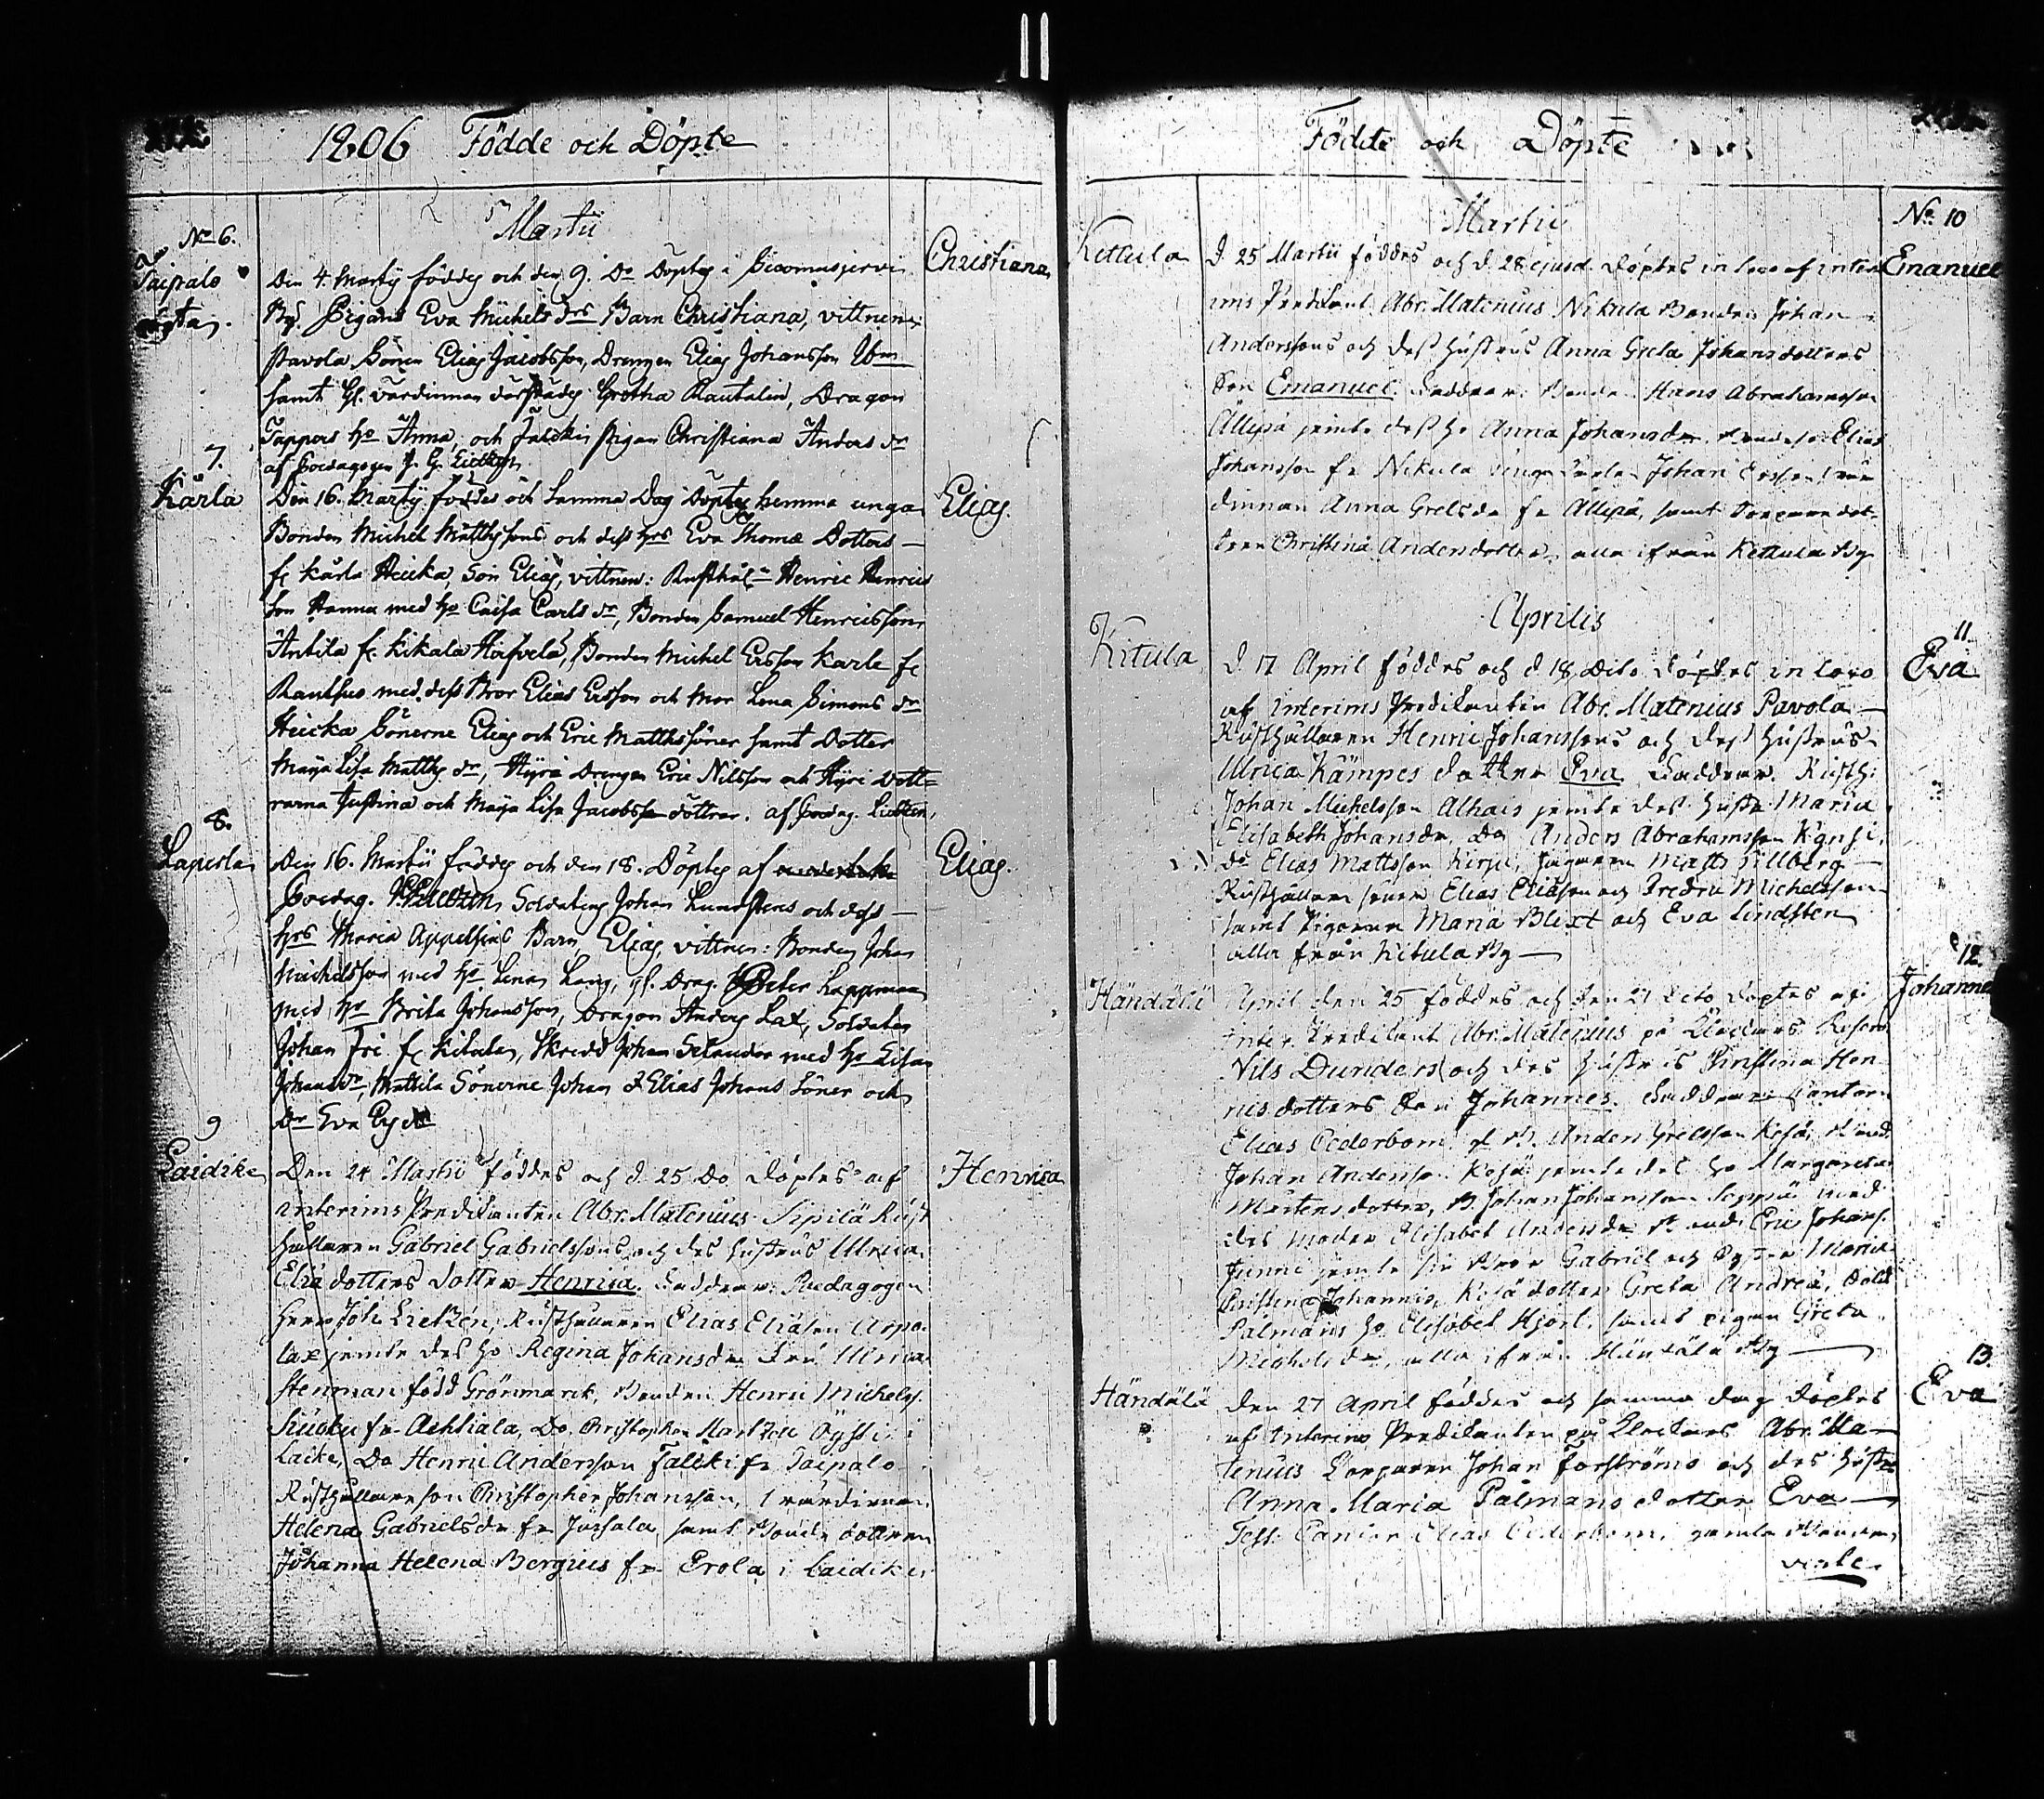 1806 Födde och Döpte
Martii
No 6.
Taipale
Christiana
Den 4. Martij föddes och den 9. Do Döptes i
By Pigans Eva Michels drs Barn Christiana, vittnen:
Pavola Sönen Elias Jacobsson, Drengen Elias Johansson
samt Gl. värdinnan därstädes Gretha Rautalin, Dragon
Tappers ho Anna, och Falcki Pigan Christiana Anders dr
af Poedagogen J. G.
7.
Kärla
Elias.
Den 16. Martij föddes och samma Dag Döptes hemma unga
Bonden Michel Matthssons och dess hrs Eva Thomæ Dotters
fr Kärla Heicka, Son Elias, vittnen: Rusthål. Henric Henrics
son Hanna med ho Caisa Carls dr, Bonden Samuel Henricsson
Antila fr Kikala, Bonden Michel Ersson Karla fr
med dess Bror Elias Ersson och Mor Lena Simons dr
Heicka Sönerne Elias och Eric Matthssöner samt Dotter
Maja Lisa Matths dr, Hyrä Drengen Eric Nilsson och Hyrä Dott=
rarna Justina och Maja Lisa Jacobs döttrar. af Poedag.
8.
Elias.
Den 16. Martii föddes och den 18. Döptes af
Poedag. Soldatens Johan Lundstens och dess
hrs Maria Appelgrens Barn Elias, vittnen: Bonden Johan
Michelsson med ho Lena Lang, gl. Drag. Peter Lappman
med ho Brita Johansson, Dragon Anders Lax, Soldaten
Johan Fri fr Kitula, Johan Selander med ho Lisa
Johansdr, Mattila Sönerne Johan & Elias Johans Söner och
Dr Eva
9
Laidike
Henrica
Den 24 Martii föddes och d. 25 Do Döptes af
interims Predikanten Abr. Matenius Sipilä Rust
hållaren Gabriel Gabrielssons och des hustrus Ulrica
Elia dotters dotter Henrica. Faddrar: Paedagogen
Herr Joh. Lietzén, Rusthållaren Elias Eliason Arpa
lax jemte des ho Regina Johansdr Fru Ulrica
Stenman född Grönmarck, Bonden Henric Michelss.
fr Achtiala, Do Christopher
Do Henric Andersson Falcki fr Taipale
Rusthållareson Christopher Johansson, värdinnan
Helena Gabrielsdr fr Jussala, samt Bonde dottren
Johanna Helena Bergius fr Erola i Laidike
Födde och Döpte
Martii
No 10
Kettula
Emanuel
d. 25 Martii föddes och d. 28 ejusd. Döptes in loco af inter
ims Predikant Abr. Matenius Nikula Bonden Johan
Anderssons och dess hustrus Anna Greta Johansdotters
Son Emanuel. Faddrar: Bonde Hans Abrahamsson
Allipä jemte dess ho Anna Johansdr Elias
Johansson fr Nikula unga Karlen Johan Ersson vär
dinnan Anna Grelsdr fr Allipä, samt Torpare dot
tren Christina Andersdotter alla ifrån Kettula By
Aprilis
11.
Kitula
Eva
d. 17 April föddes och d. 18 Dito Döptes in loco
af Interims Predikanten Abr. Matenius Pavola
Rusthållaren Henric Johanssons och dess hustrus
Ulrica Kämpes dotter Eva Faddrar. Rusth:
Johan Michelsson Alhais jemte des hustr. Maria
Elisabeth Johansdr. Do Anders Abrahamsson
Do Elias Mattsson Matts Lillberg
Rusthållare sönen Elias Eliason och Fredric Michelsson
samt Pigorna Maria Blixt och Eva Lindsten
alla från Kitula By
12.
Händälä
Johannes
April den 25 föddes och den 27 Dito Döptes af
Inter. Predikant Abr. Matenius på Klockars Reserv.
Nils Dunders och des hustrus Christina Hen
ricsdotters Son Johannes. Faddrar: Cantorn
Elias Cederbom gl. B. Anders Grelsson Kosä, Bond.
Johan Andersson Kosä jemte des ho Margareta
Mårtensdotter, B. Johan Johansson Seppä med
des moder Elisabet Andersdr Bond. Eric Johans.
Junni jemte sin Bror Gabriel och Syster Maria
Christina Johannis, Kosä dotter Greta Andreæ, Sold.
Palmans ho Elisabet Hjort, samt pigan Greta
Michelsdr, alla ifrån Händälä By
13.
Händälä
Eva
Den 27 April föddes och samma dag döptes
af Interims Predikanten på Klockars Abr. Ma-
tenius Torparen Johan Forströms och des hustrus
Anna Maria Palmans dotter Eva
Test. Cantor Elias Cederbom, gamla Bonden
verte